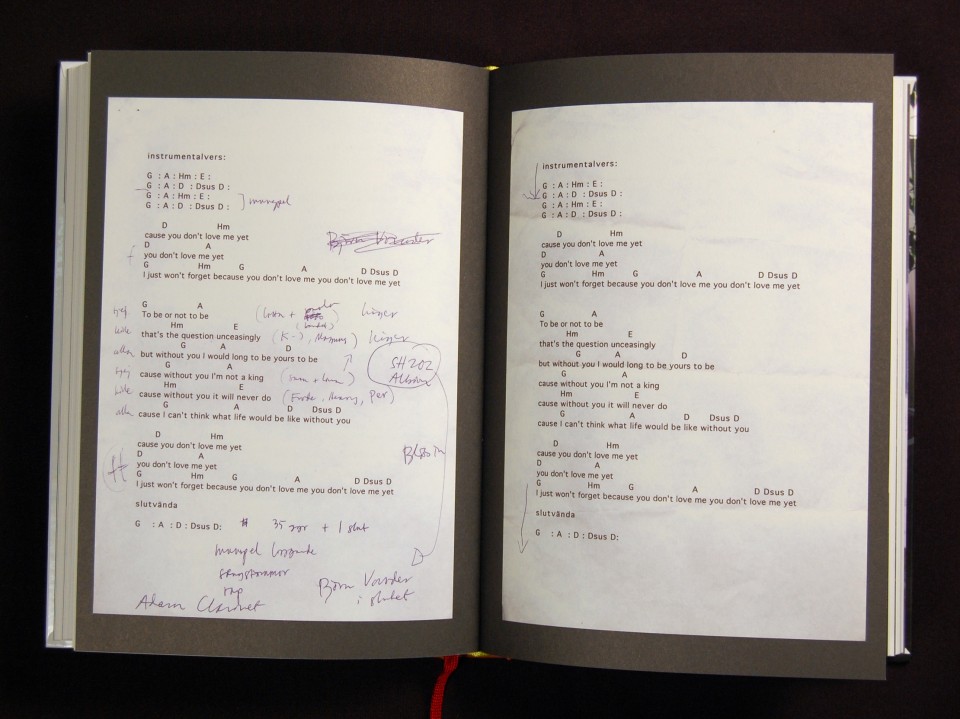 instrumentalvers:
G : A : Hm : E :
G : A : D : Dsus D :
G : A : Hm : E :
G : A : D : Dsus D :
D Hm
cause you don't love me yet
Björn
D A
you don't love me yet
G Hm G A D Dsus D
I just won't forget because you don't love me you don't love me yet
G A
To be or not to be
Hm E
that's the question unceasingly
G A D
but without you I would long to be yours to be
SH 202
Album
G A
cause without you I'm not a king
Hm E
cause without you it will never do
G A D Dsus D
cause I can't think what life would be like without you
D Hm
cause you don't love me yet
D A
you don't love me yet
G Hm G A D Dsus D
I just won't forget because you don't love me you don't love me yet
slutvända
G : A : D : Dsus D:
35 + 1 slut
Björn
i slutet
Adam
instrumentalvers:
G : A : Hm : E :
G : A : D : Dsus D :
G : A : Hm : E :
G : A : D : Dsus D :
D Hm
cause you don't love me yet
D A
you don't love me yet
G Hm G A D Dsus D
I just won't forget because you don't love me you don't love me yet
G A
To be or not to be
Hm E
that's the question unceasingly
G A D
but without you I would long to be yours to be
G A
cause without you I'm not a king
Hm E
cause without you it will never do
G A D Dsus D
cause I can't think what life would be like without you
D Hm
cause you don't love me yet
D A
you don't love me yet
G Hm G A D Dsus D
I just won't forget because you don't love me you don't love me yet
slutvända
G : A : D : Dsus D: